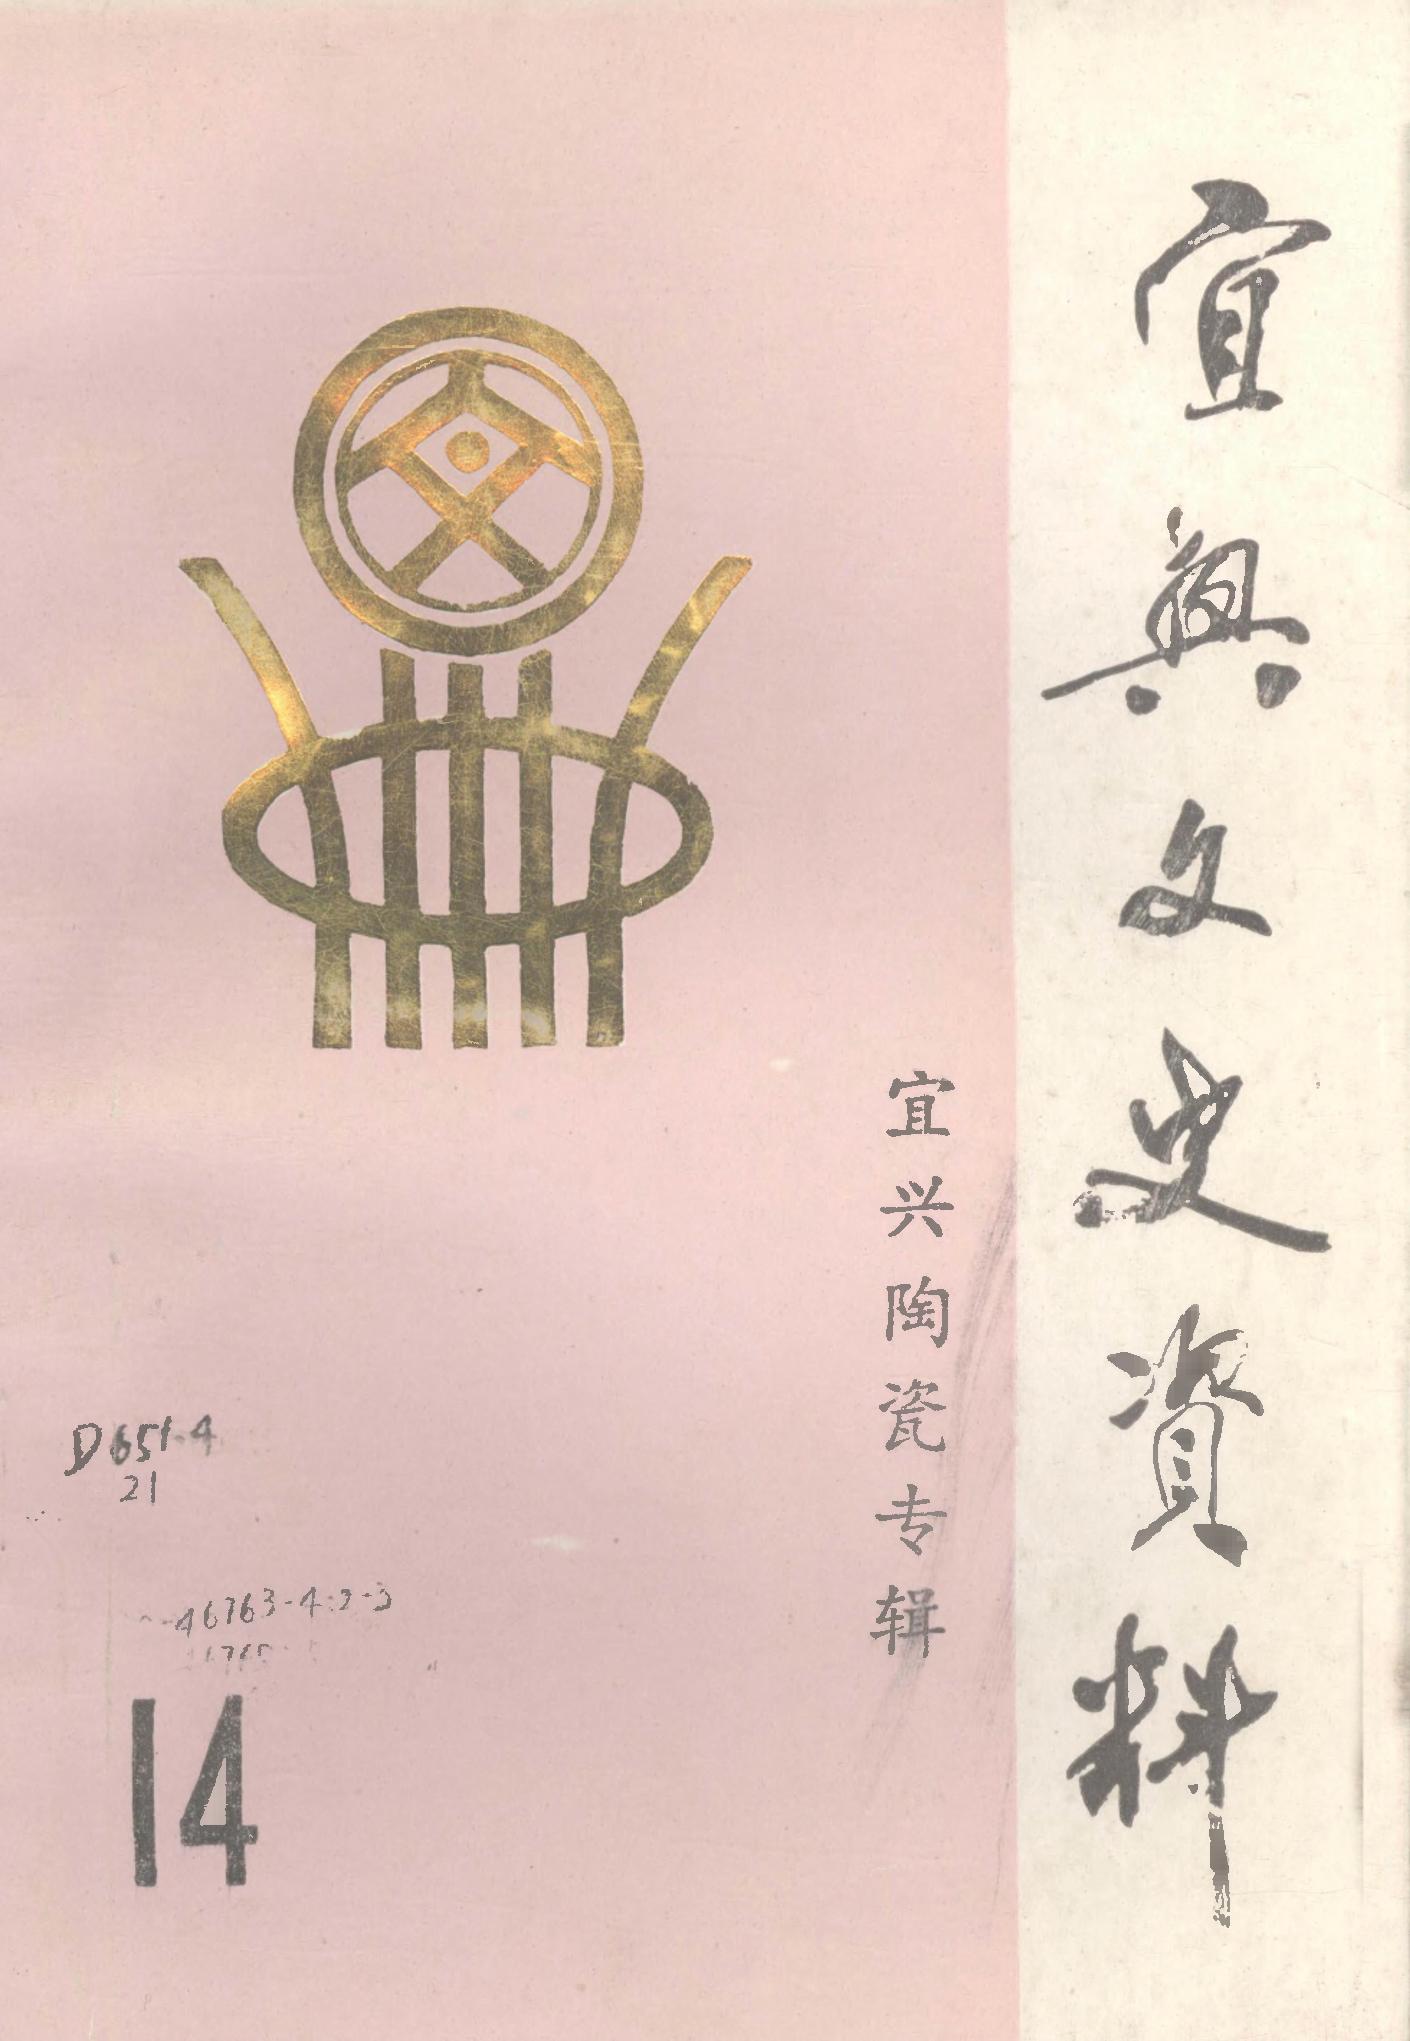 宜興文史資料
宜兴陶瓷专辑
D651.4
21
46763-4:2-3
14